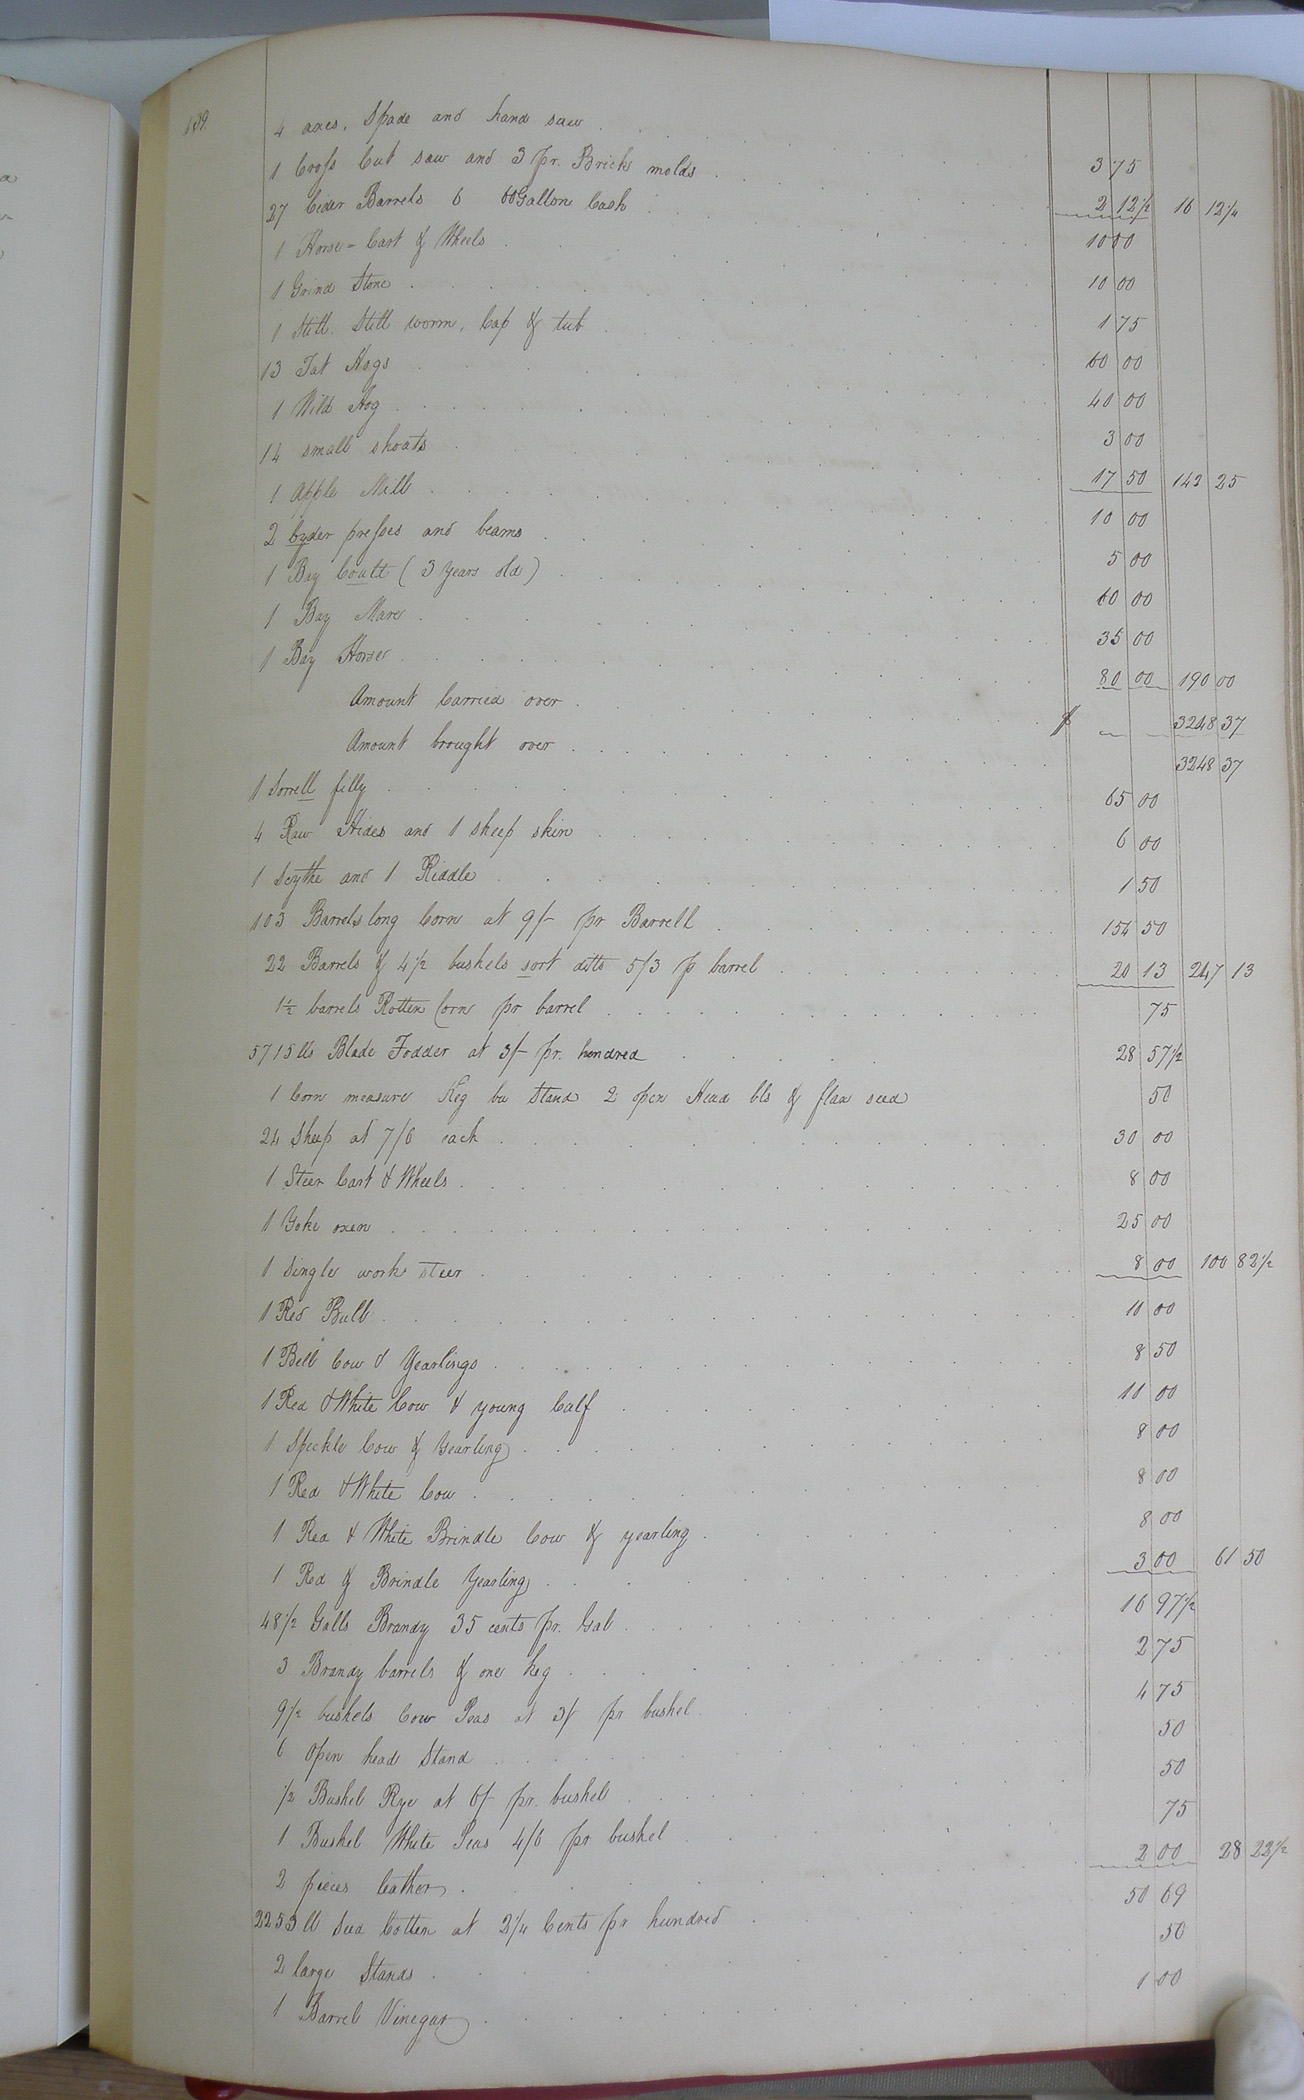 139
4 axes, Spade and hand saw 3 75
1 Cross Cut saw and 3 pr. Brick molds 2 12½ 16 12¼
27 Cider Barrels 6 60 Gallon Cask 10 00
1 Horse-Cart & Wheels 10 00
1 Grind Stone 1 75
1 Still. Still worm, Cap & tub 60 00
13 Fat Hogs 40 00
1 Wild Hog 3 00
14 small shoats 17 50 142 25
1 Apple Mill 10 00
2 Cyder presses and beams 5 00
1 Bay Coult (3 Years old) 60 00
1 Bay Mare 35 00
1 Bay Horse 80 00 190 00
Amount Carried over 3248 37
Amount brought over 3248 37
1 Sorrell filly 65 00
4 Raw Hides and 1 sheep skin 6 00
1 Scythe and 1 Riddle 1 50
103 Barrels long Corn at 9/- pr Barrell 154 50
22 Barrels & 4½ bushels sort ditto 5/3 p barrel 20 13 247 13
1½ barrels Rotten Corn pr barrel 75
5715 lb Blade Fodder at 3/- pr. hundred 28 57½
1 Corn measure Keg bee Stand 2 open Head bls & flax seed 50
24 Sheep at 7/6 each 30 00
1 Steer Cart & Wheels 8 00
1 Yoke oxen 25 00
1 Single work steer 8 00 100 82½
1 Red Bull 10 00
1 Bell Cow & Yearlings 8 50
1 Red & White Cow & young Calf 11 00
1 Speckle Cow & Yearling 8 00
1 Red & White Cow 8 00
1 Red & White Brindle Cow & yearling 8 00
1 Red & Brindle Yearling 3 00 61 50
48½ Galls Brandy 35 cents pr. Gal 16 97½
3 Brandy barrels & one keg 2 75
9½ bushels Cow Peas at 3/ pr bushel 4 75
6 Open head Stand 50
½ Bushel Rye at 6/ pr. bushel 50
1 Bushel White Peas 4/6 pr bushel 75
2 pieces leather 2 00 28 22½
2253 lb Seed Cotton at 2¼ Cents pr hundred 50 69
2 large Stands 50
1 Barrel Vinegar 1 00